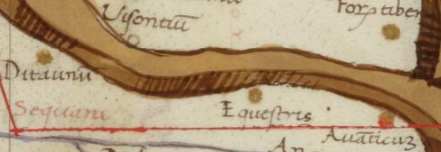 Visontiū
Forū tiber
Ditaunū
Sequani
Equestris
Auāticuz